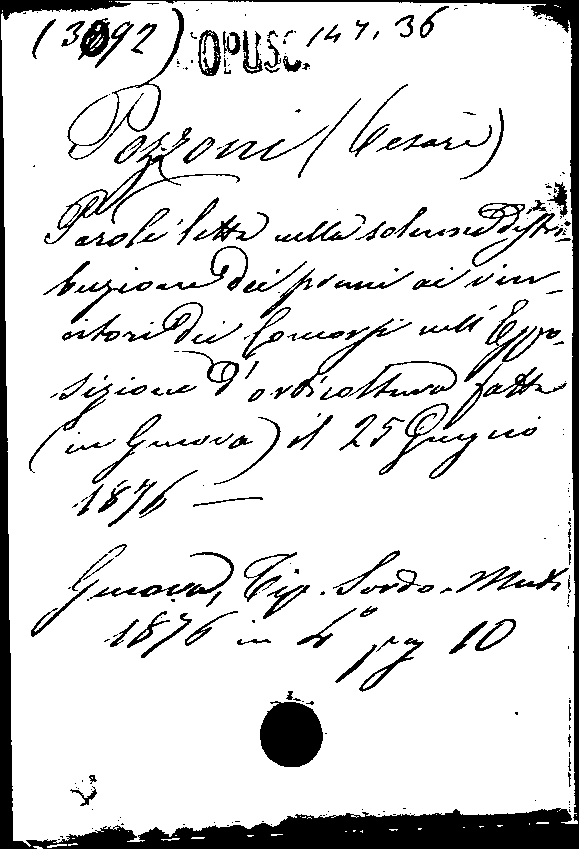 (3892) OPUSC. 147. 36
Pozzoni (Cesare)
Parole lette nella solenne distri-
buzione dei premi ai vin-
citori dei Concorsi nell' Espo-
sizione d'orticoltura fatta
(in Genova) il 25 Giugno
1876 —
Genova, Tip. Sordo-Muti
1876 in 4° pag 10